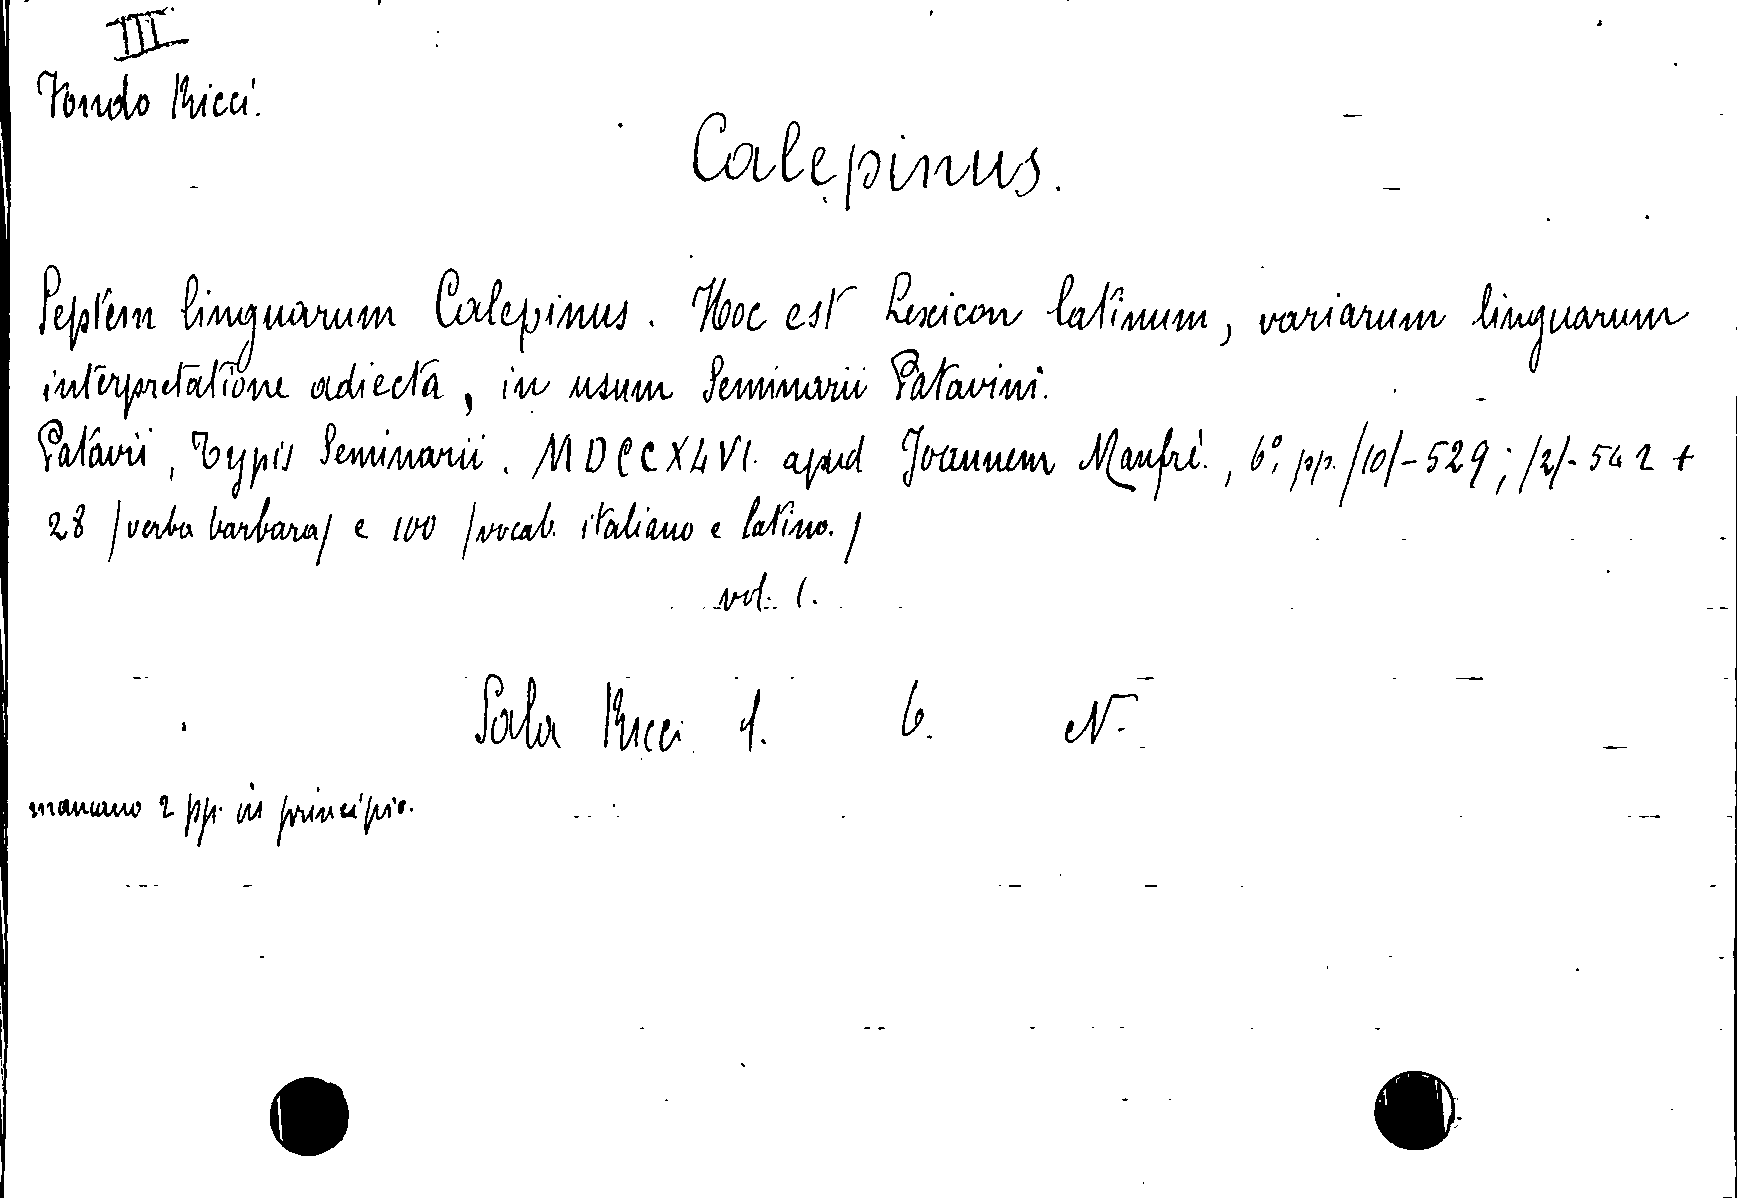 III
Fondo Ricci.
Calepinus.
Septem linguarum Calepinus. Hoc est Lexicon latinum, variarum linguarum
interpretatione adiecta, in usum Seminarii Patavini.
Patavii, Typis Seminarii. MDCCXLVI. apud Joannem Manfrè., 6°, pp. /10/-529; /2/-542 +
28 /verba barbara/ e 100 /vocab. italiano e latino./
vol. 1.
Sala Ricci 1. 6. N.
mancano 2 pp. in principio.